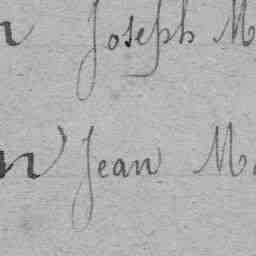 n Joseph M
n Jean Ma